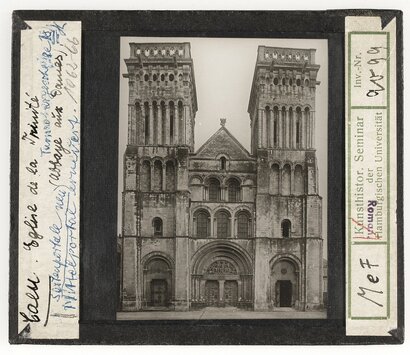 Caen. Eglise de la Trinité
(Abbaye aux Dames)
1062-66
Seitenportale neu
Mittelportal erneuert
Inv.-Nr.
2099
Kunsthistor. Seminar
der
Roman
Hamburgischen Universität
MeF